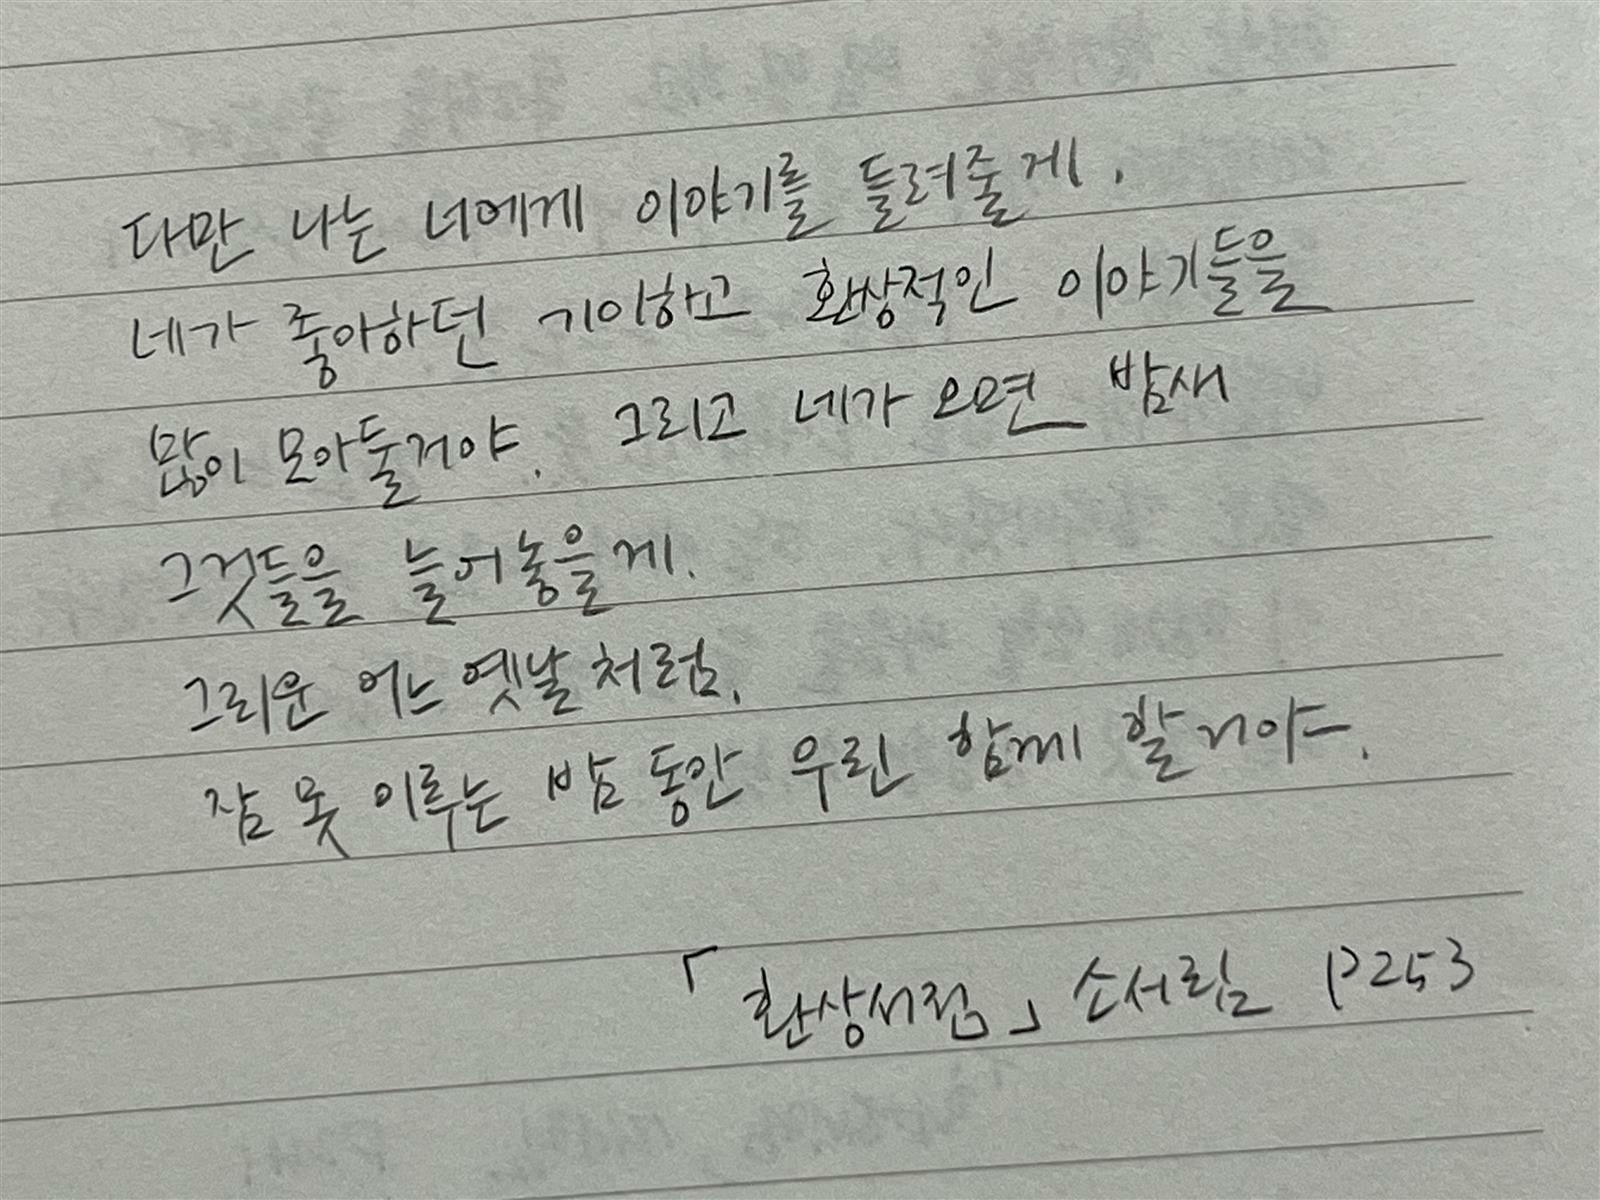 다만 나는 너에게 이야기를 들려줄게.
네가 좋아하던 기이하고 환상적인 이야기들을
많이 모아둘거야. 그리고 네가 오면 밤새
그것들을 늘어놓을게.
그리운 어느 옛날처럼.
잠 못 이루는 밤 동안 우린 함께 할거야.
「환상서점」 소서림 P253